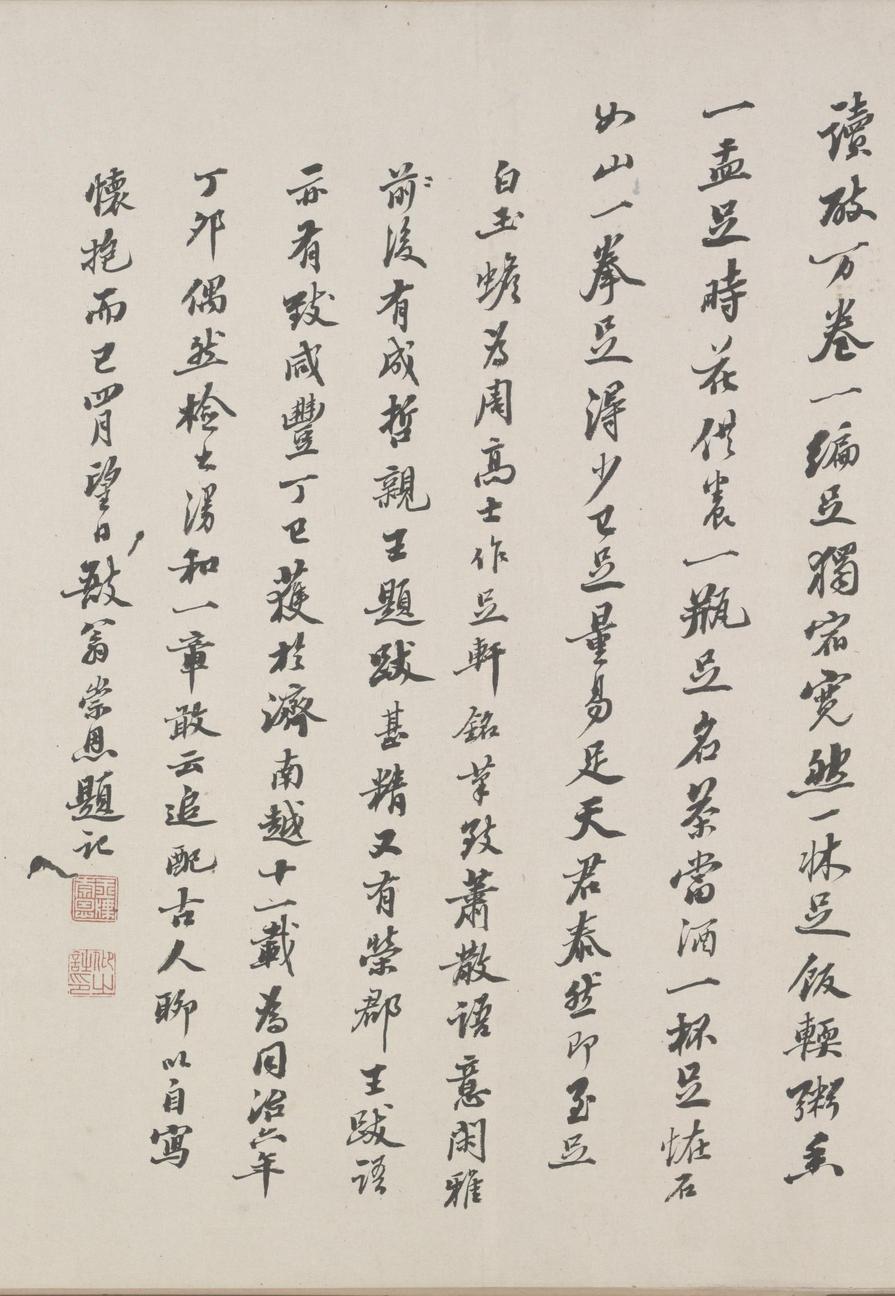 讀破万卷一編足獨宿寬然一牀足飯輭粥香
一盂足時花供養一瓶足名茶當酒一杯足恠石
如山一拳足得少已足量易足天君泰然即至足
白玉蟾為周高士作足軒銘筆致蕭散語意閑雅
前後有成哲親王題跋甚精又有榮郡王跋語
亦有致咸豐丁巳獲於濟南越十一載為同治六年
丁卯偶然檢出漫和一章敢云追配古人聊以自寫
懷抱而已四月望日敔翁崇恩題記